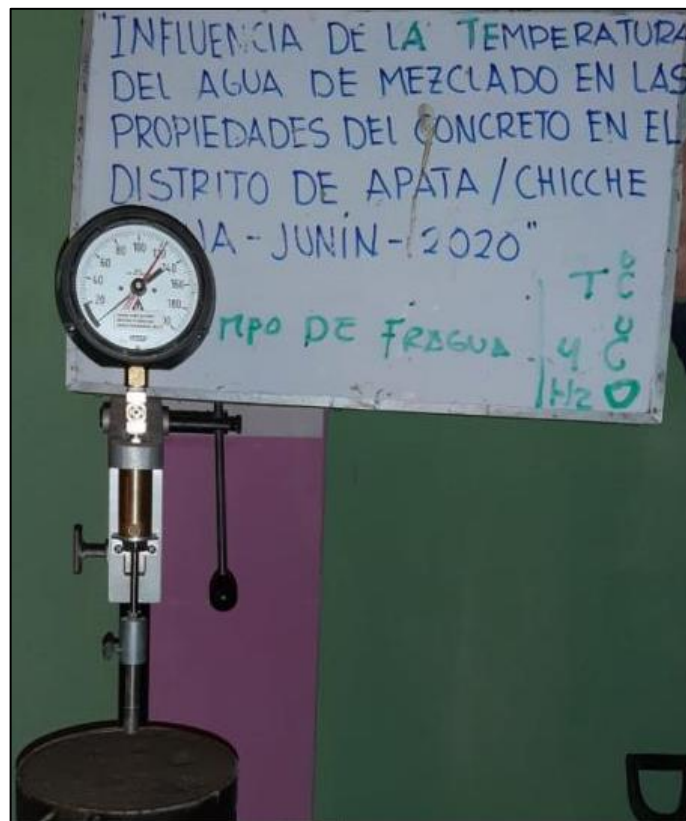 "INFLUENCIA DE LA TEMPERATURA
DEL AGUA DE MEZCLADO EN LAS
PROPIEDADES DEL CONCRETO EN EL
DISTRITO DE APATA / CHICCHE
- JUNÍN - 2020"
DE FRAGUA
T °C
4 °C
H2O
20
40
60
80
100
120
140
160
180